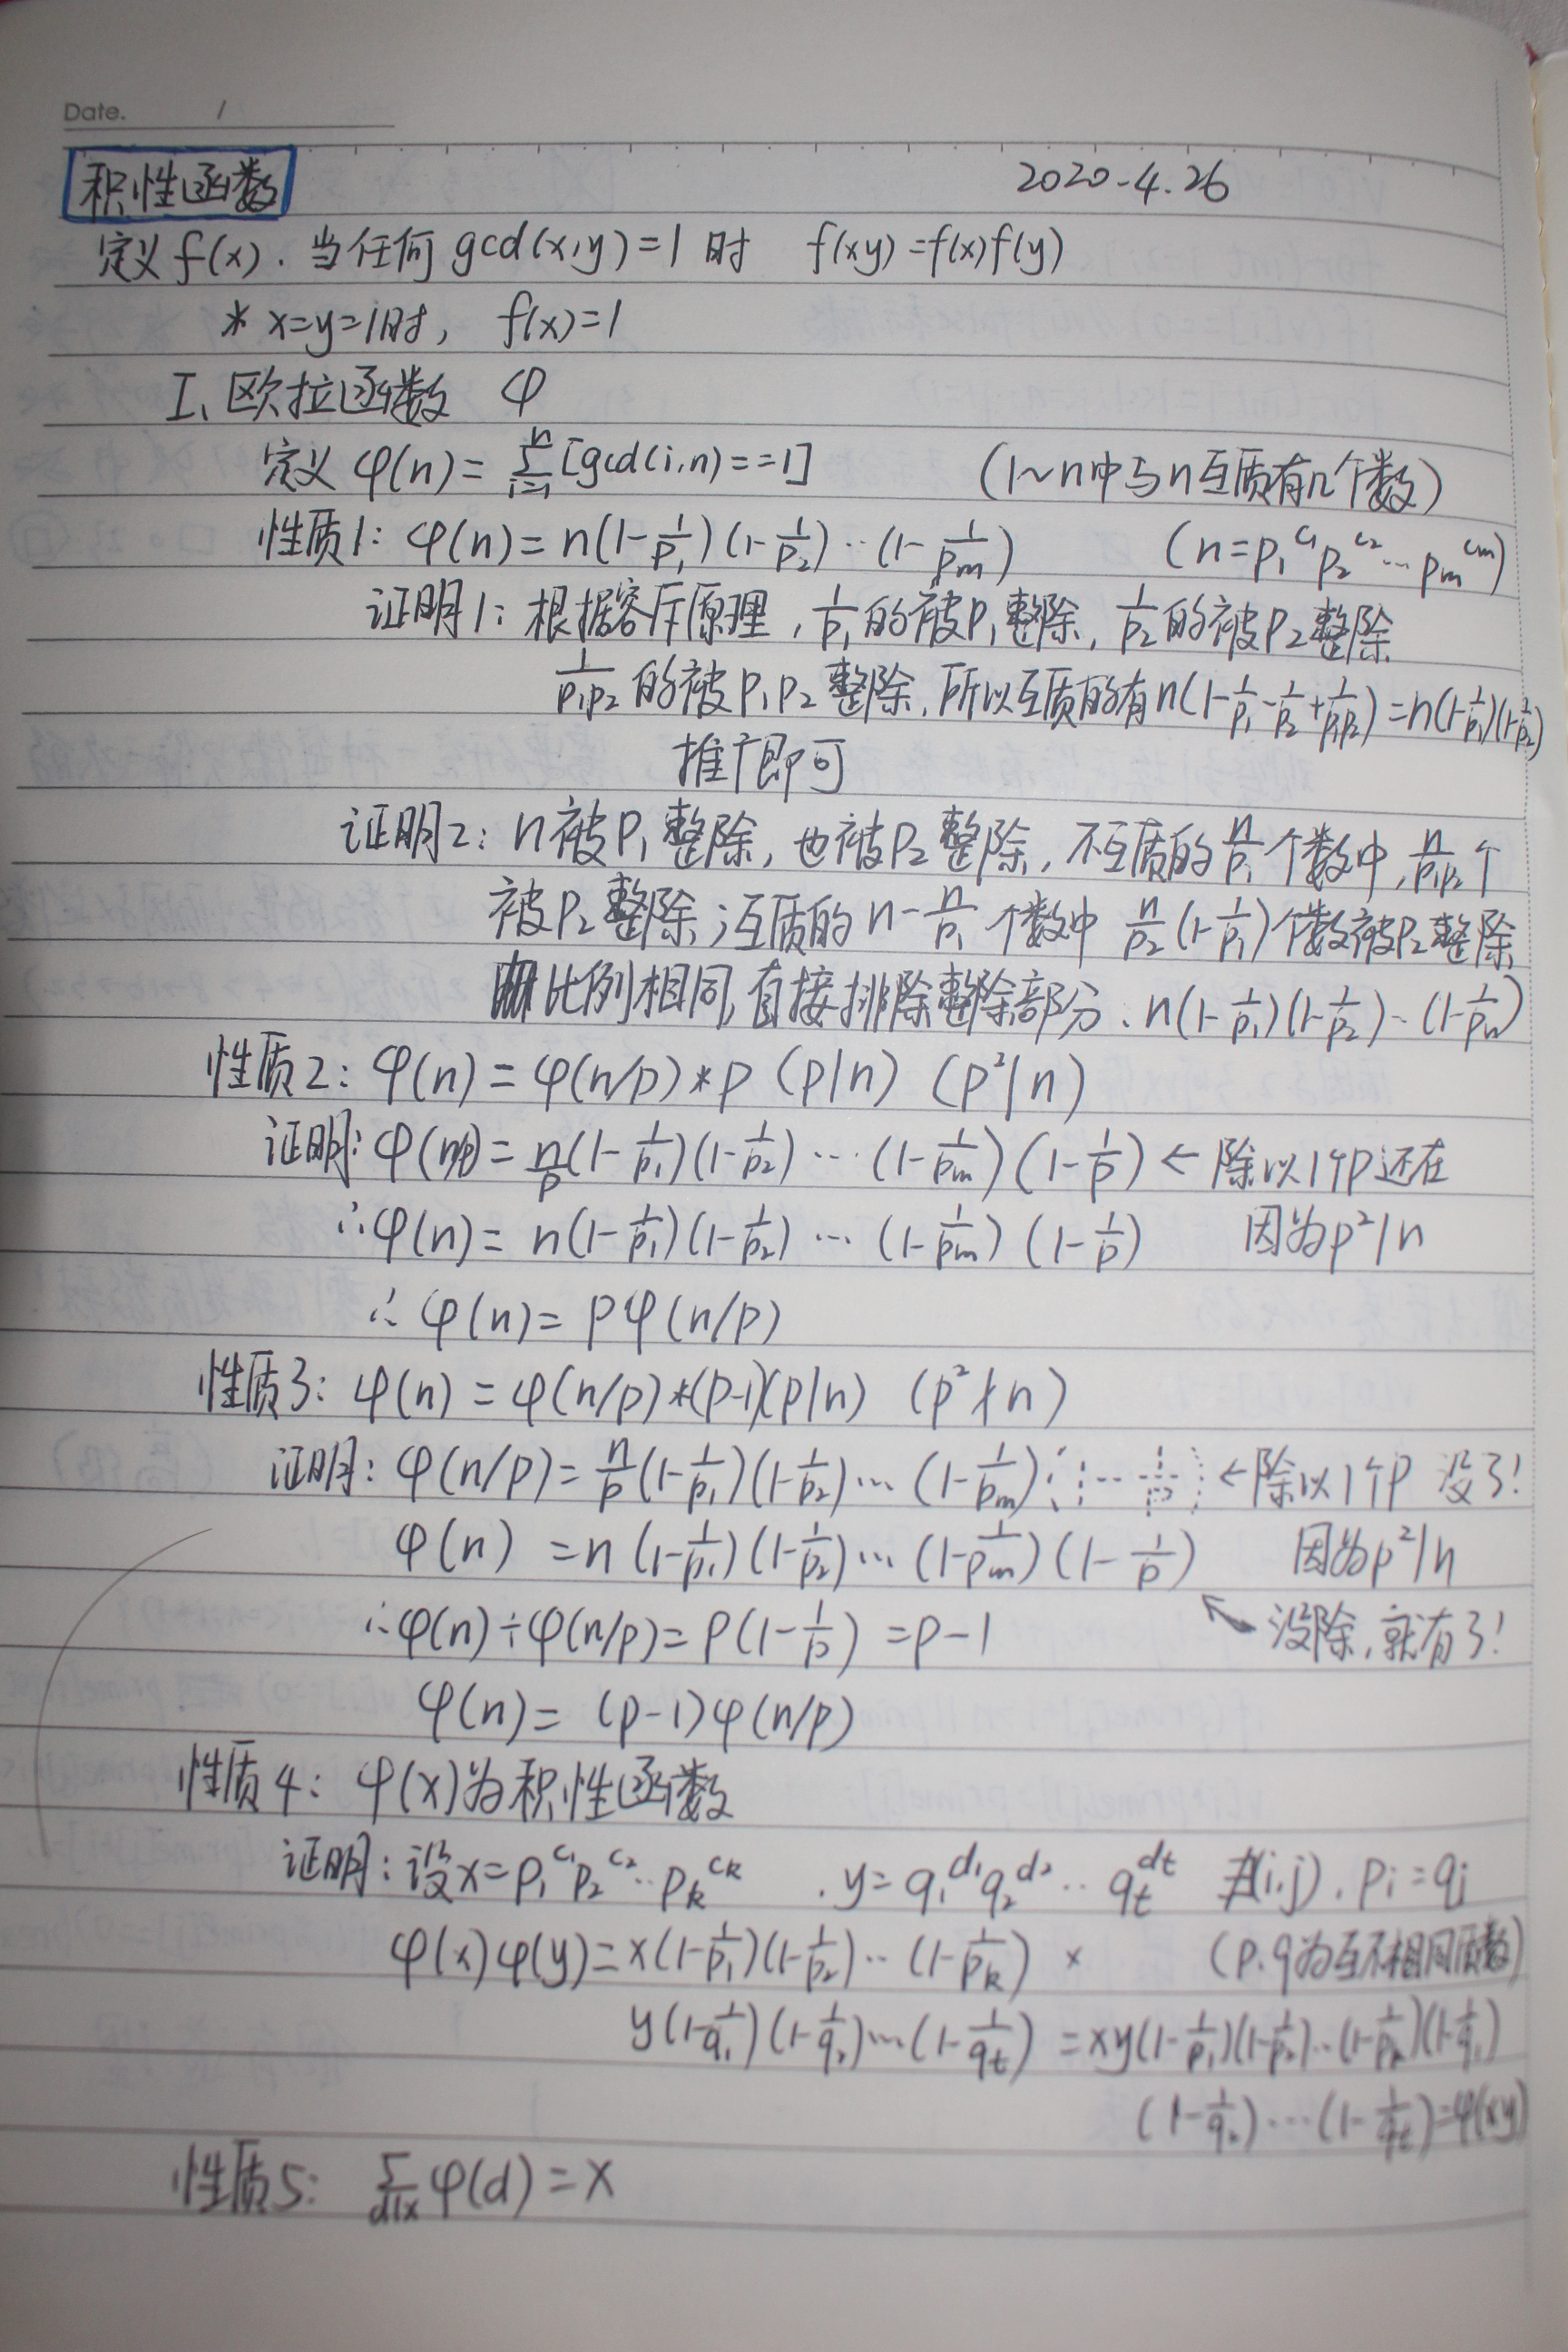 Date. /
积性函数 2020-4.26
定义 f(x). 当任何 gcd(x,y)=1 时 f(xy)=f(x)f(y)
* x=y=1时, f(x)=1
I、欧拉函数 φ
定义 φ(n)=∑_{i=1}^{n}[gcd(i,n)==1] (1~n中与n互质有几个数)
性质1: φ(n)=n(1-1/p₁)(1-1/p₂)··(1-1/pₘ) (n=p₁^{c₁}p₂^{c₂}…pₘ^{cₘ})
证明1: 根据容斥原理, 1/p₁的被p₁整除, 1/p₂的被p₂整除
1/(p₁p₂)的被p₁p₂整除, 所以互质的有n(1-1/p₁-1/p₂+1/(p₁p₂))=n(1-1/p₁)(1-1/p₂)
推广即可
证明2: n被p₁整除, 也被p₂整除, 不互质的n/p₁个数中, n/(p₁p₂)个
被p₂整除; 互质的n-n/p₁个数中 n/p₂(1-1/p₁)个数被p₂整除
比例相同, 直接排除整除部分、n(1-1/p₁)(1-1/p₂)··(1-1/pₙ)
性质2: φ(n)=φ(n/p)*p (p|n) (p²|n)
证明: φ(n/p)=n/p(1-1/p₁)(1-1/p₂)…(1-1/pₘ)(1-1/p) ← 除以1个p还在
∴φ(n)=n(1-1/p₁)(1-1/p₂)…(1-1/pₘ)(1-1/p) 因为p²|n
∴ φ(n)=pφ(n/p)
性质3: φ(n)=φ(n/p)*(p-1)(p|n) (p²∤n)
证明: φ(n/p)=n/p(1-1/p₁)(1-1/p₂)…(1-1/pₘ) ←除以1个p 没了!
φ(n)=n(1-1/p₁)(1-1/p₂)…(1-1/pₘ)(1-1/p) 因为p²|n
∴φ(n)÷φ(n/p)=p(1-1/p)=p-1 ↖ 没除, 就有了!
φ(n)=(p-1)φ(n/p)
性质4: φ(x)为积性函数
证明: 设x=p₁^{c₁}p₂^{c₂}··pₖ^{cₖ} , y=q₁^{d₁}q₂^{d₂}··qₜ^{dₜ} ∄(i,j), pᵢ=qⱼ
φ(x)φ(y)=x(1-1/p₁)(1-1/p₂)··(1-1/pₖ) × (p.q为互不相同质数)
y(1-1/q₁)(1-1/q₂)…(1-1/qₜ)=xy(1-1/p₁)(1-1/p₂)··(1-1/pₖ)(1-1/q₁)
(1-1/q₂)…(1-1/qₜ)=φ(xy)
性质5: ∑_{d|x}φ(d)=x